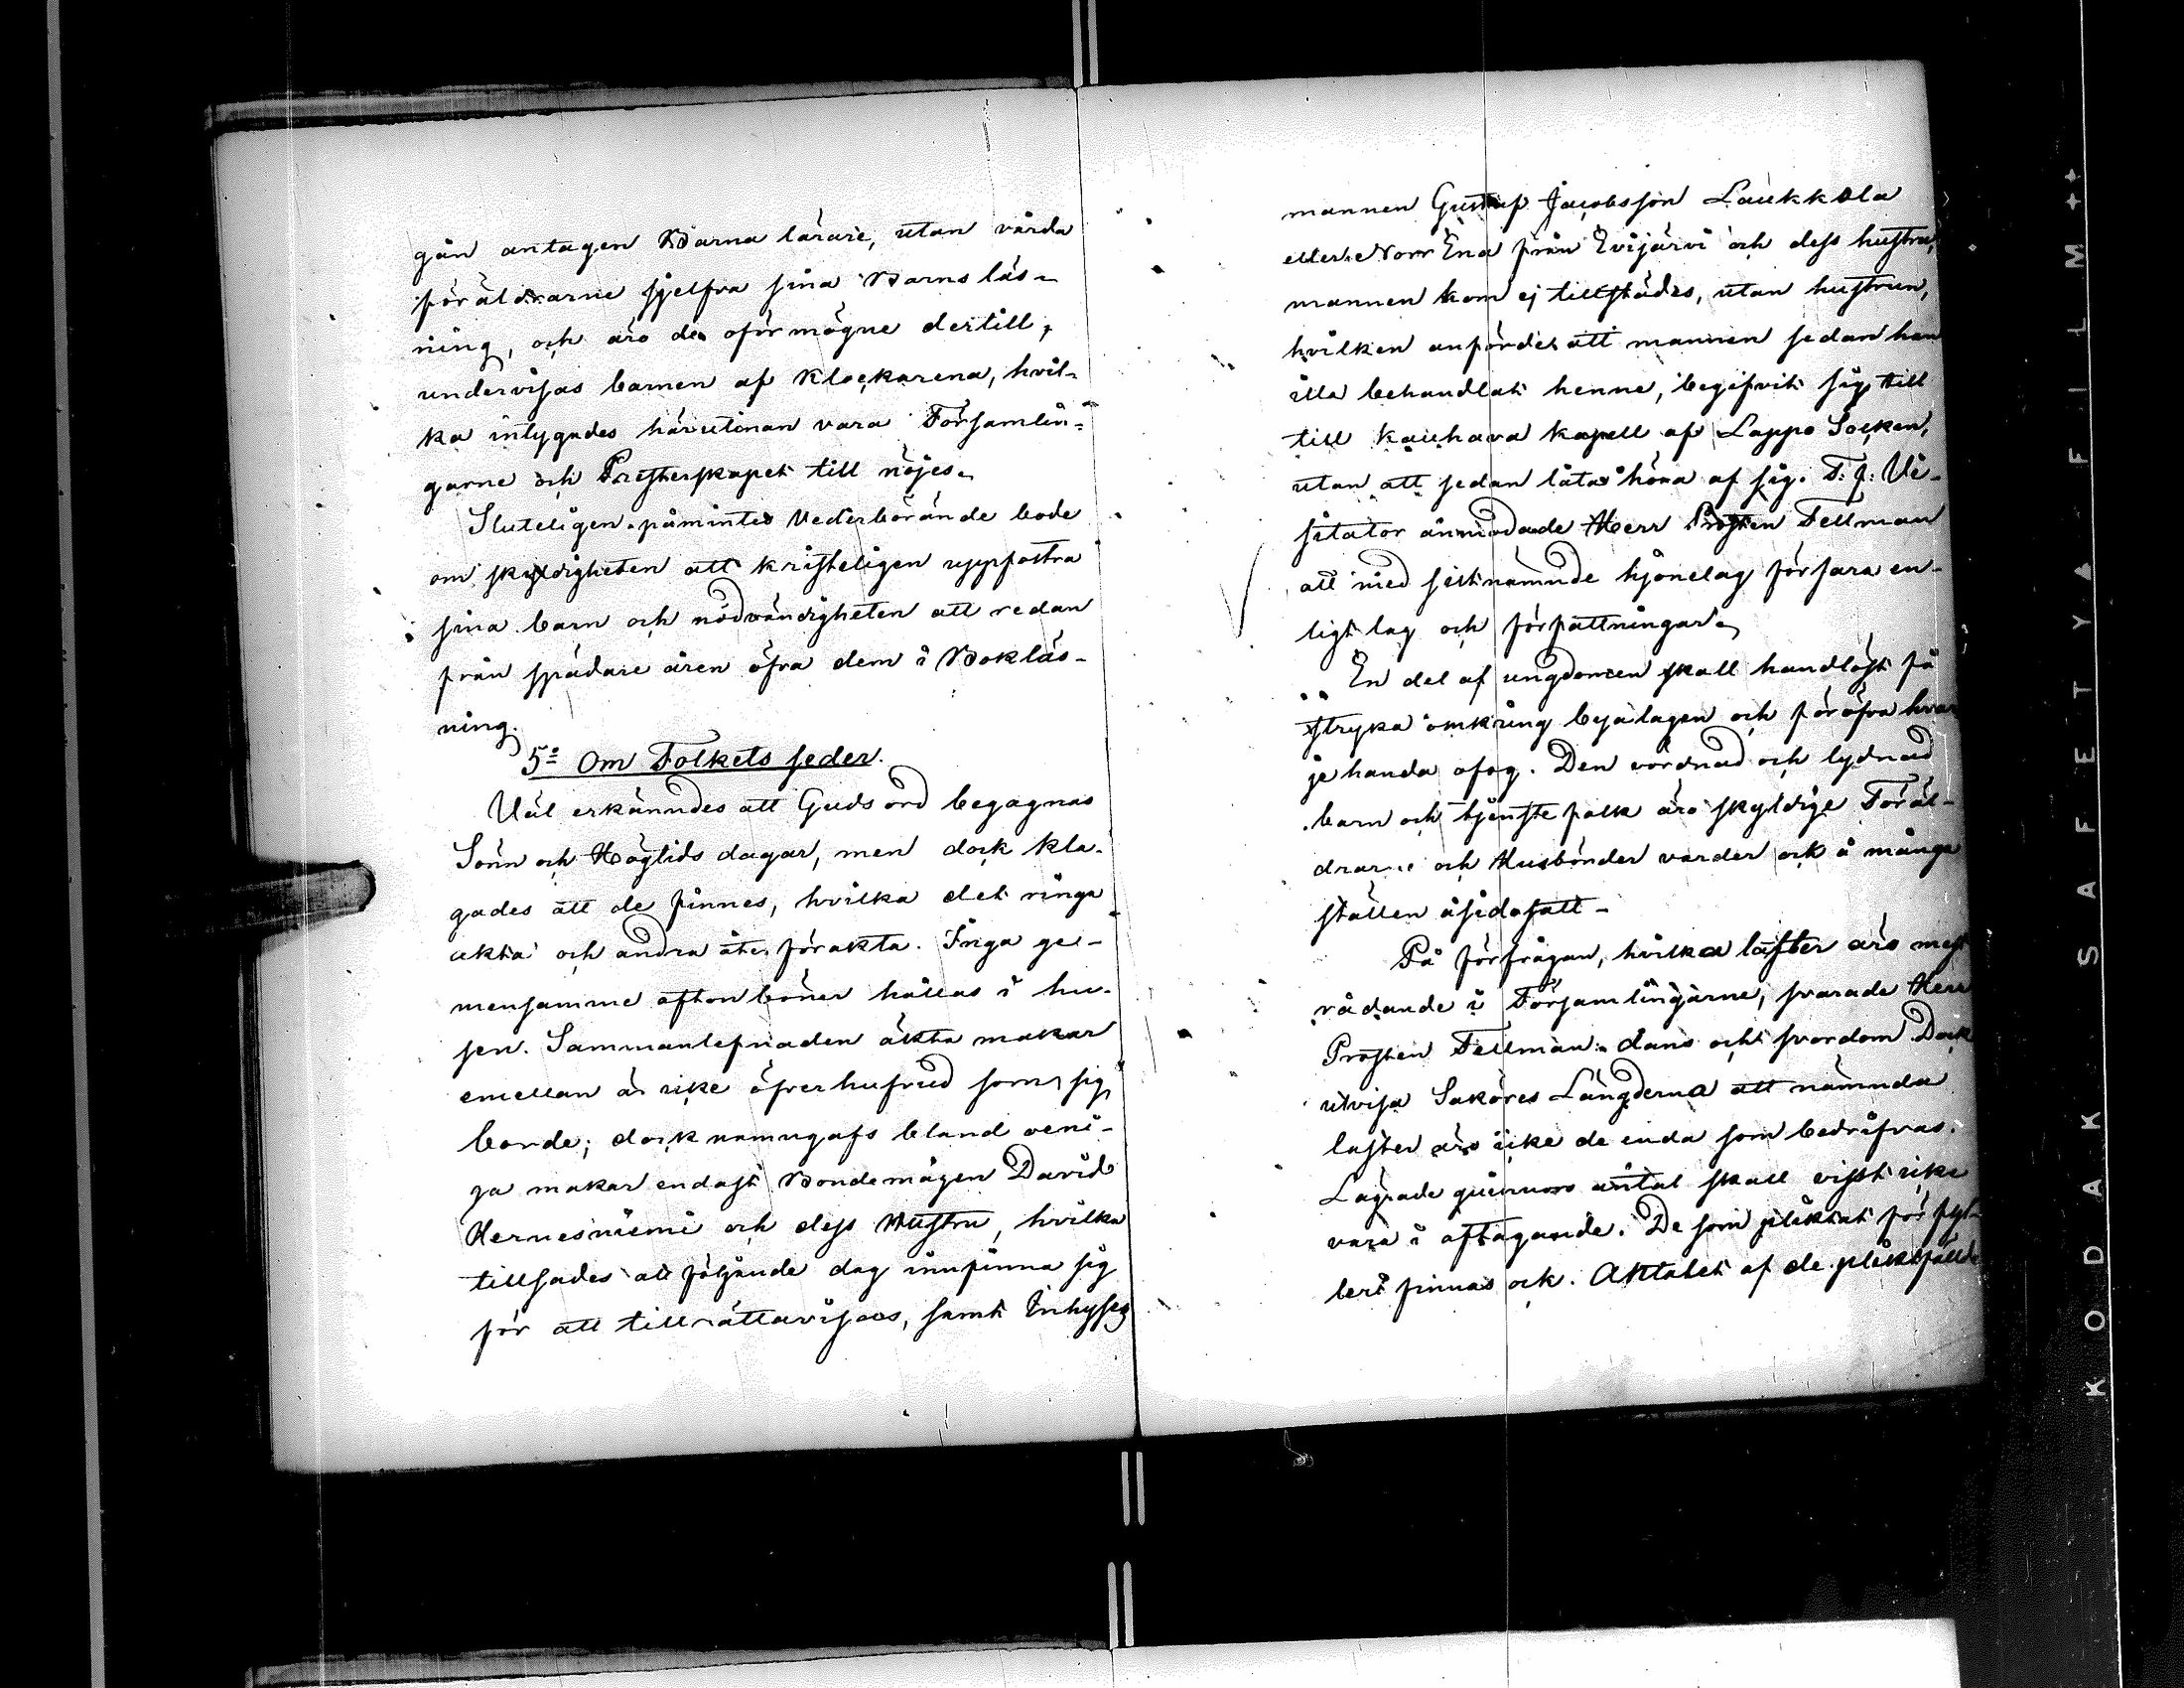 gån antagen Barna lärare, utan vårda
föräldrarne sjelfva sina Barns läs-
ning, och äro de oförmögne dertill,
undervisas barnen af Klockarena, hvil-
ka intygades härutinnan vara Församlin-
garne och Presterskapet till nöjes.
Sluteligen påmintes Vederbörande bode
om skyldigheten att kristeligen uppfostra
sina barn och nödvändigheten att redan
från spädare åren öfva dem i Bokläs-
ning.
5o Om Folkets seder.
Väl erkänndes att Guds ord begagnas
Sönn och Högtids dagar, men dock kla-
gades att de finnes, hvilka det ringa
akta och andra åter förakta. Inga ge-
mensamme aftonböner hållas i hu-
sen. Sammanlefnaden äkta makar
emellan är icke öfverhufvud som sig
borde; dock namngafs bland oeni-
ga makar endast Bondemågen David
Hernesniemi och dess Hustru, hvilka
tillsades att följande dag innfinna sig
för att tillrättavisas, samt Inhyses
mannen Gustaf Jacobsson Laukkola
eller Norr Ena från Evijärvi och dess hustru,
mannen kom ej tillstädes, utan hustrun,
hvilken anförde att mannen sedan han
illa behandlat henne, begifvit sig till
till Kauhava kapell af Lappo Socken,
utan att sedan låta höra af sig. T. f. Vi-
sitator anmodade Herr Prosten Fellman
att med sistnämnde hjonelag förfara en-
ligt lag och författningar.
En del af ungdomen skall handlöst få
stryka omkring byalagen och föröfva hvar
jehanda ofog. Den vördnad och lydnad
barn och tjenstefolk äro skyldige Föräl-
drarne och Husbönder varder ock å många
ställen åsidosatt.
På förfrågan, hvilka laster äro mest
rådande i Församlingarne, svarade Herr
Prosten Fellman dans och svordom Dock
utvisa Saköres Längderna att nämnda
laster äro icke de enda som bedrifvas.
Lägrade quinnors antal skall visst icke
vara i aftagande. De som pliktat för fyl-
leri finnas ock. Antalet af de pliktfällde